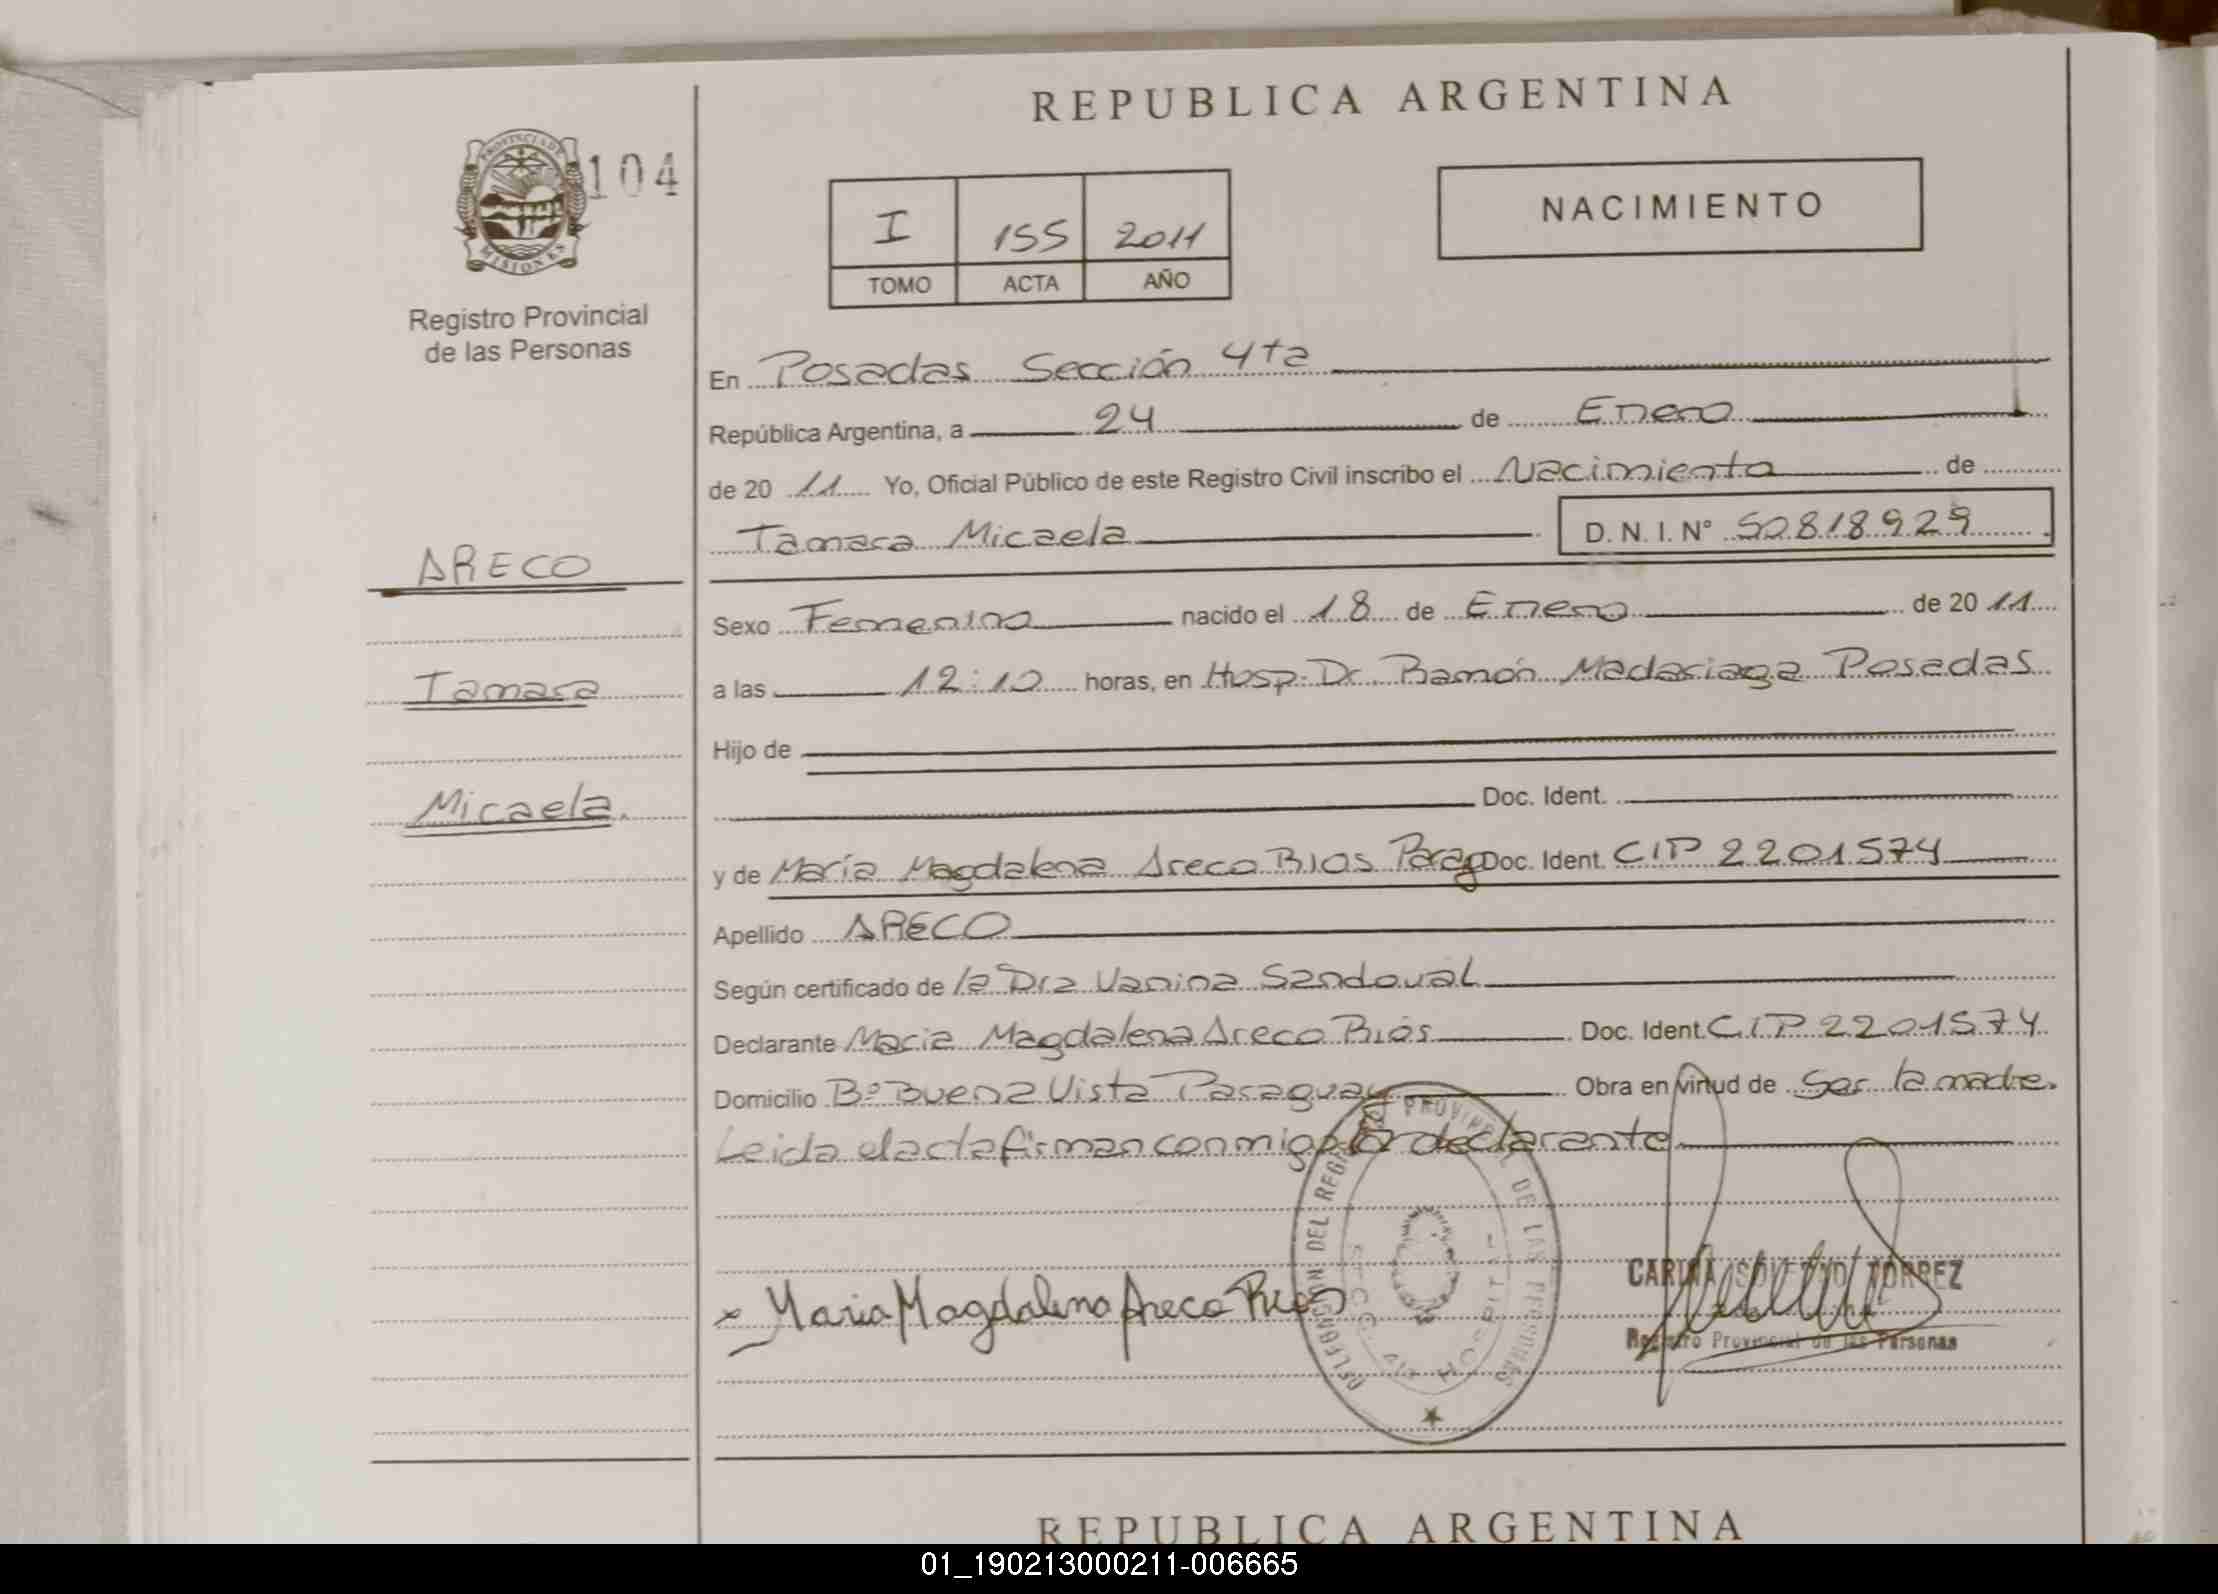 REPUBLICA ARGENTINA
PROVINCIA DE
MISIONES
104
Registro Provincial
de las Personas
I 155 2011
TOMO ACTA AÑO
NACIMIENTO
En Posadas Sección 4ta
República Argentina, a 24 de Enero
de 20 11 Yo, Oficial Público de este Registro Civil inscribo el Nacimiento de
Tamara Micaela D. N. I. N° 50818929
ARECO
Tamara
Micaela.
Sexo Femenino nacido el 18 de Enero de 20 11
a las 12:10 horas, en Hosp. Dr. Ramón Madariaga Posadas
Hijo de
Doc. Ident.
y de María Magdalena Areco Rios Parag Doc. Ident. CIP 2201574
Apellido ARECO
Según certificado de la Dra Vanina Sandoval
Declarante Maria Magdalena Areco Rios Doc. Ident. CIP 2201574
Domicilio B° Buena Vista Paraguay Obra en virtud de Ser la madre.
Leida el acta firman conmigo declarante
DELEGACION DEL REGISTRO PROVINCIAL DE LAS PERSONAS
x Maria Magdalena Areco Rios
CARINA TORREZ
Registro Provincial de las Personas
REPUBLICA ARGENTINA
01_190213000211-006665